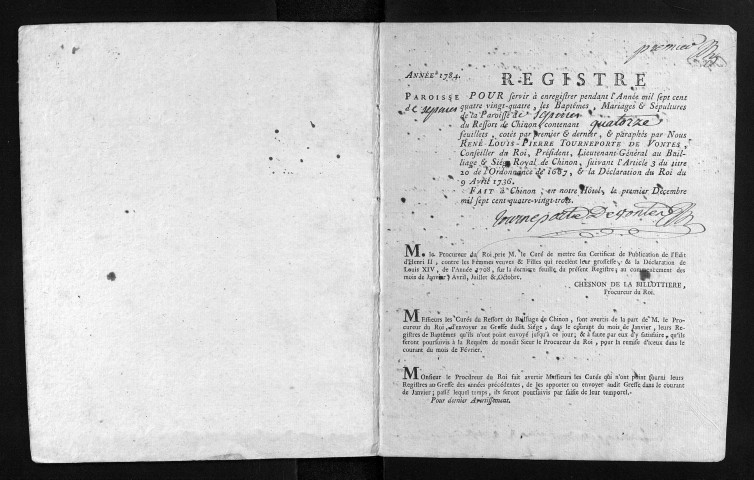 premier
ANNÉE 1784.
REGISTRE
PAROISSE
de sepmes
POUR servir à enregistrer pendant l'Année mil sept cent
quatre vingt-quatre, les Baptêmes, Mariages & Sépultures
de la Paroisse de sepmes
du Ressort de Chinon, contenant quatorze
feuillets, cotés par premier & dernier, & paraphés par Nous
RENÉ-LOUIS-PIERRE TOURNEPORTE DE VONTES,
Conseiller du Roi, Président, Lieutenant-Général au Bail-
liage & Siége Royal de Chinon, suivant l'Article 3 du titre
20 de l'Ordonnance de 1667, & la Déclaration du Roi du
9 Avril 1736.
FAIT à Chinon, en notre Hôtel, le premier Décembre
mil sept cent quatre-vingt-trois.
Tourneporte De vontes
M. le Procureur du Roi, prie M. le Curé de mettre son Certificat de Publication de l'Edit
d'Henri II, contre les Femmes veuves & Filles qui recèlent leur grossesse, & la Déclaration de
Louis XIV, de l'Année 1708, sur la derniere feuille du présent Registre, au commencement des
mois de Janvier, Avril, Juillet & Octobre.
CHESNON DE LA BILLOTTIERE,
Procureur du Roi.
Messieurs les Curés du Ressort du Bailliage de Chinon, sont avertis de la part de M. le Pro-
cureur du Roi, d'envoyer au Greffe dudit Siége, dans le courant du mois de Janvier, leurs Re-
gistres de Baptêmes qu'ils n'ont point envoyé jusqu'à ce jour; & à faute par eux d'y satisfaire, qu'ils
seront poursuivis à la Requête de mondit Sieur le Procureur du Roi, pour la remise d'iceux dans le
courant du mois de Février.
Monsieur le Procureur du Roi fait avertir Messieurs les Curés qui n'ont point fourni leurs
Registres au Greffe des années précédentes, de les apporter ou envoyer audit Greffe dans le courant
de Janvier; passé lequel temps, ils seront poursuivis par saisie de leur temporel.
Pour dernier Avertissement.